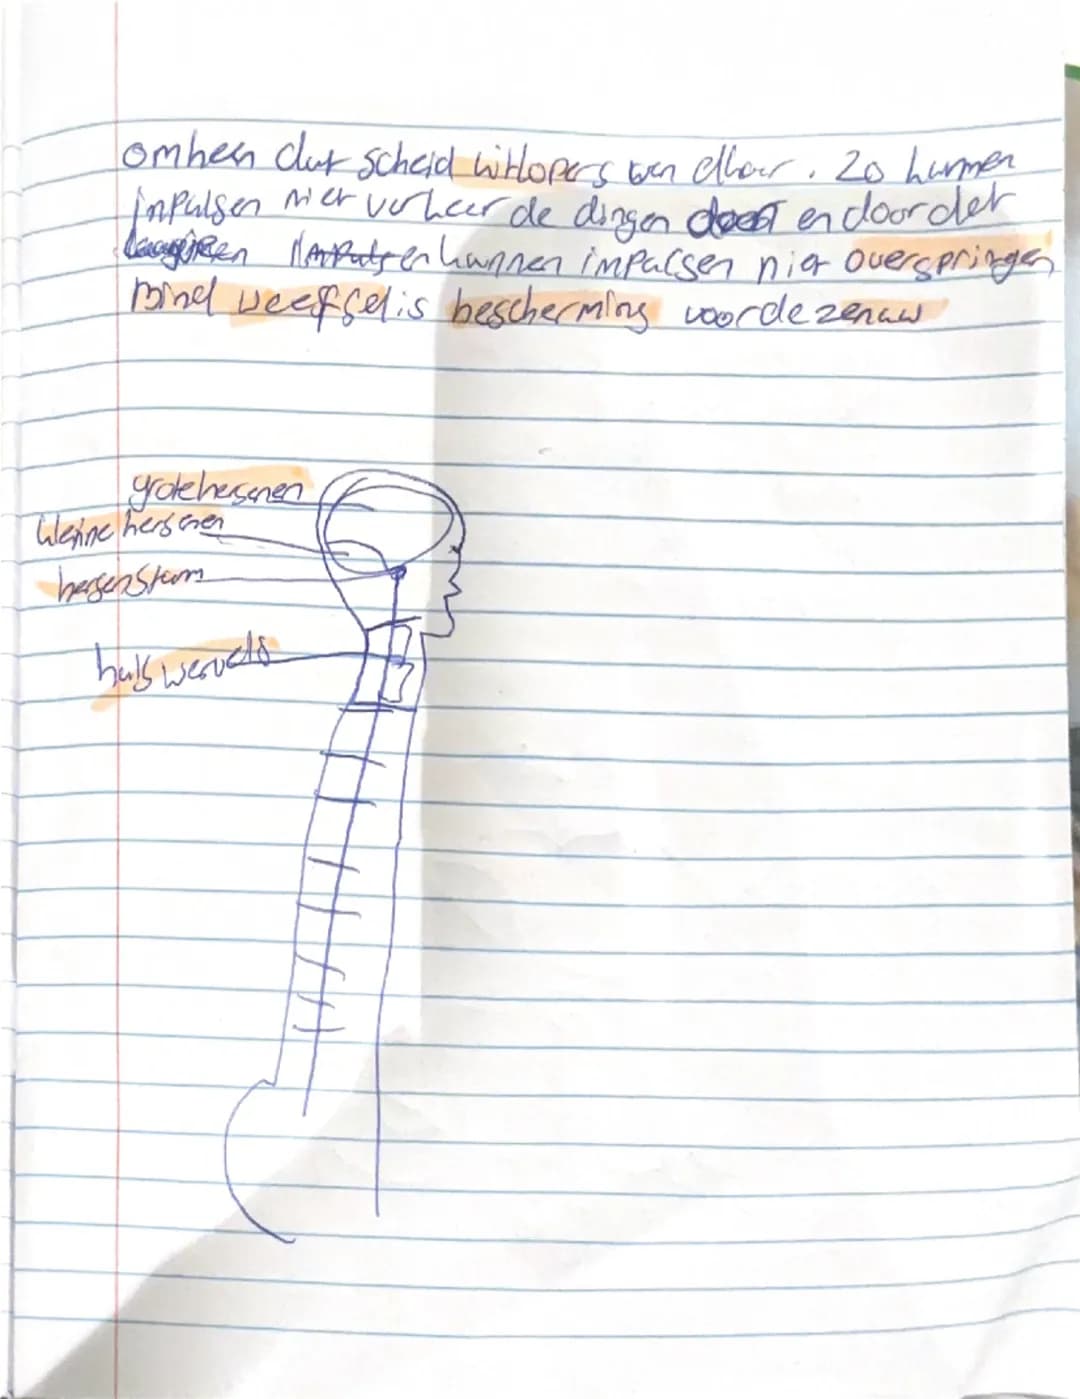 omheen dat scheid uitlopers van elkaar. Zo kunnen
impulsen niet verkeerde dingen doen en door dat
impulsen kunnen impulsen niet overspringen
Bind weefsel is bescherming voor de zenuw
grote hersenen
kleine hersenen
hersenstam
halswervels